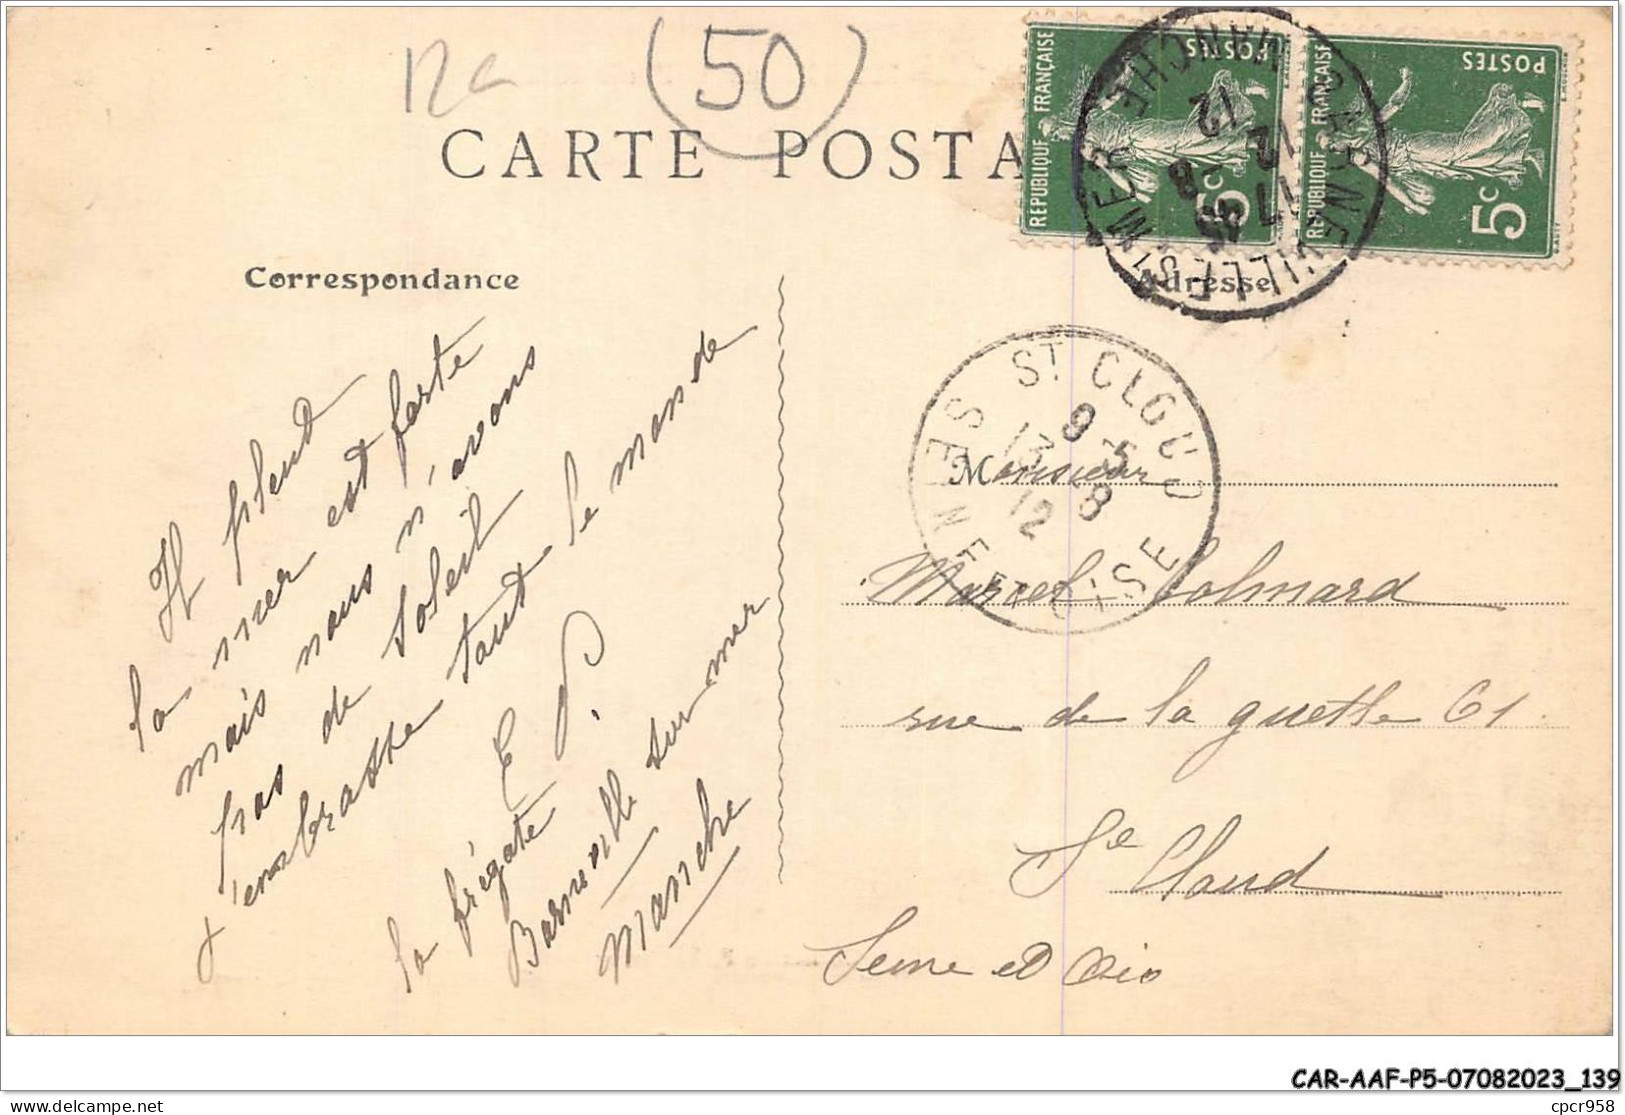 (50)
CARTE POSTA
POSTES
REPUBLIQUE FRANÇAISE
5c
POSTES
REPUBLIQUE FRANÇAISE
5c
MANCHE
12
Correspondance
Adresse
Il pleut
la mer est forte
mais nous n'avons
pas de soleil
j'embrasse tout le monde
E P.
la frégate
Barneville sur mer
Manche
ST CLOUD
9 35
13 8
12
SEINE ET OISE
Monsieur
Marcel Colmard
rue de la guette 61
St Cloud
Seine et Oise
CAR-AAF-P5-07082023_139
cpcr958